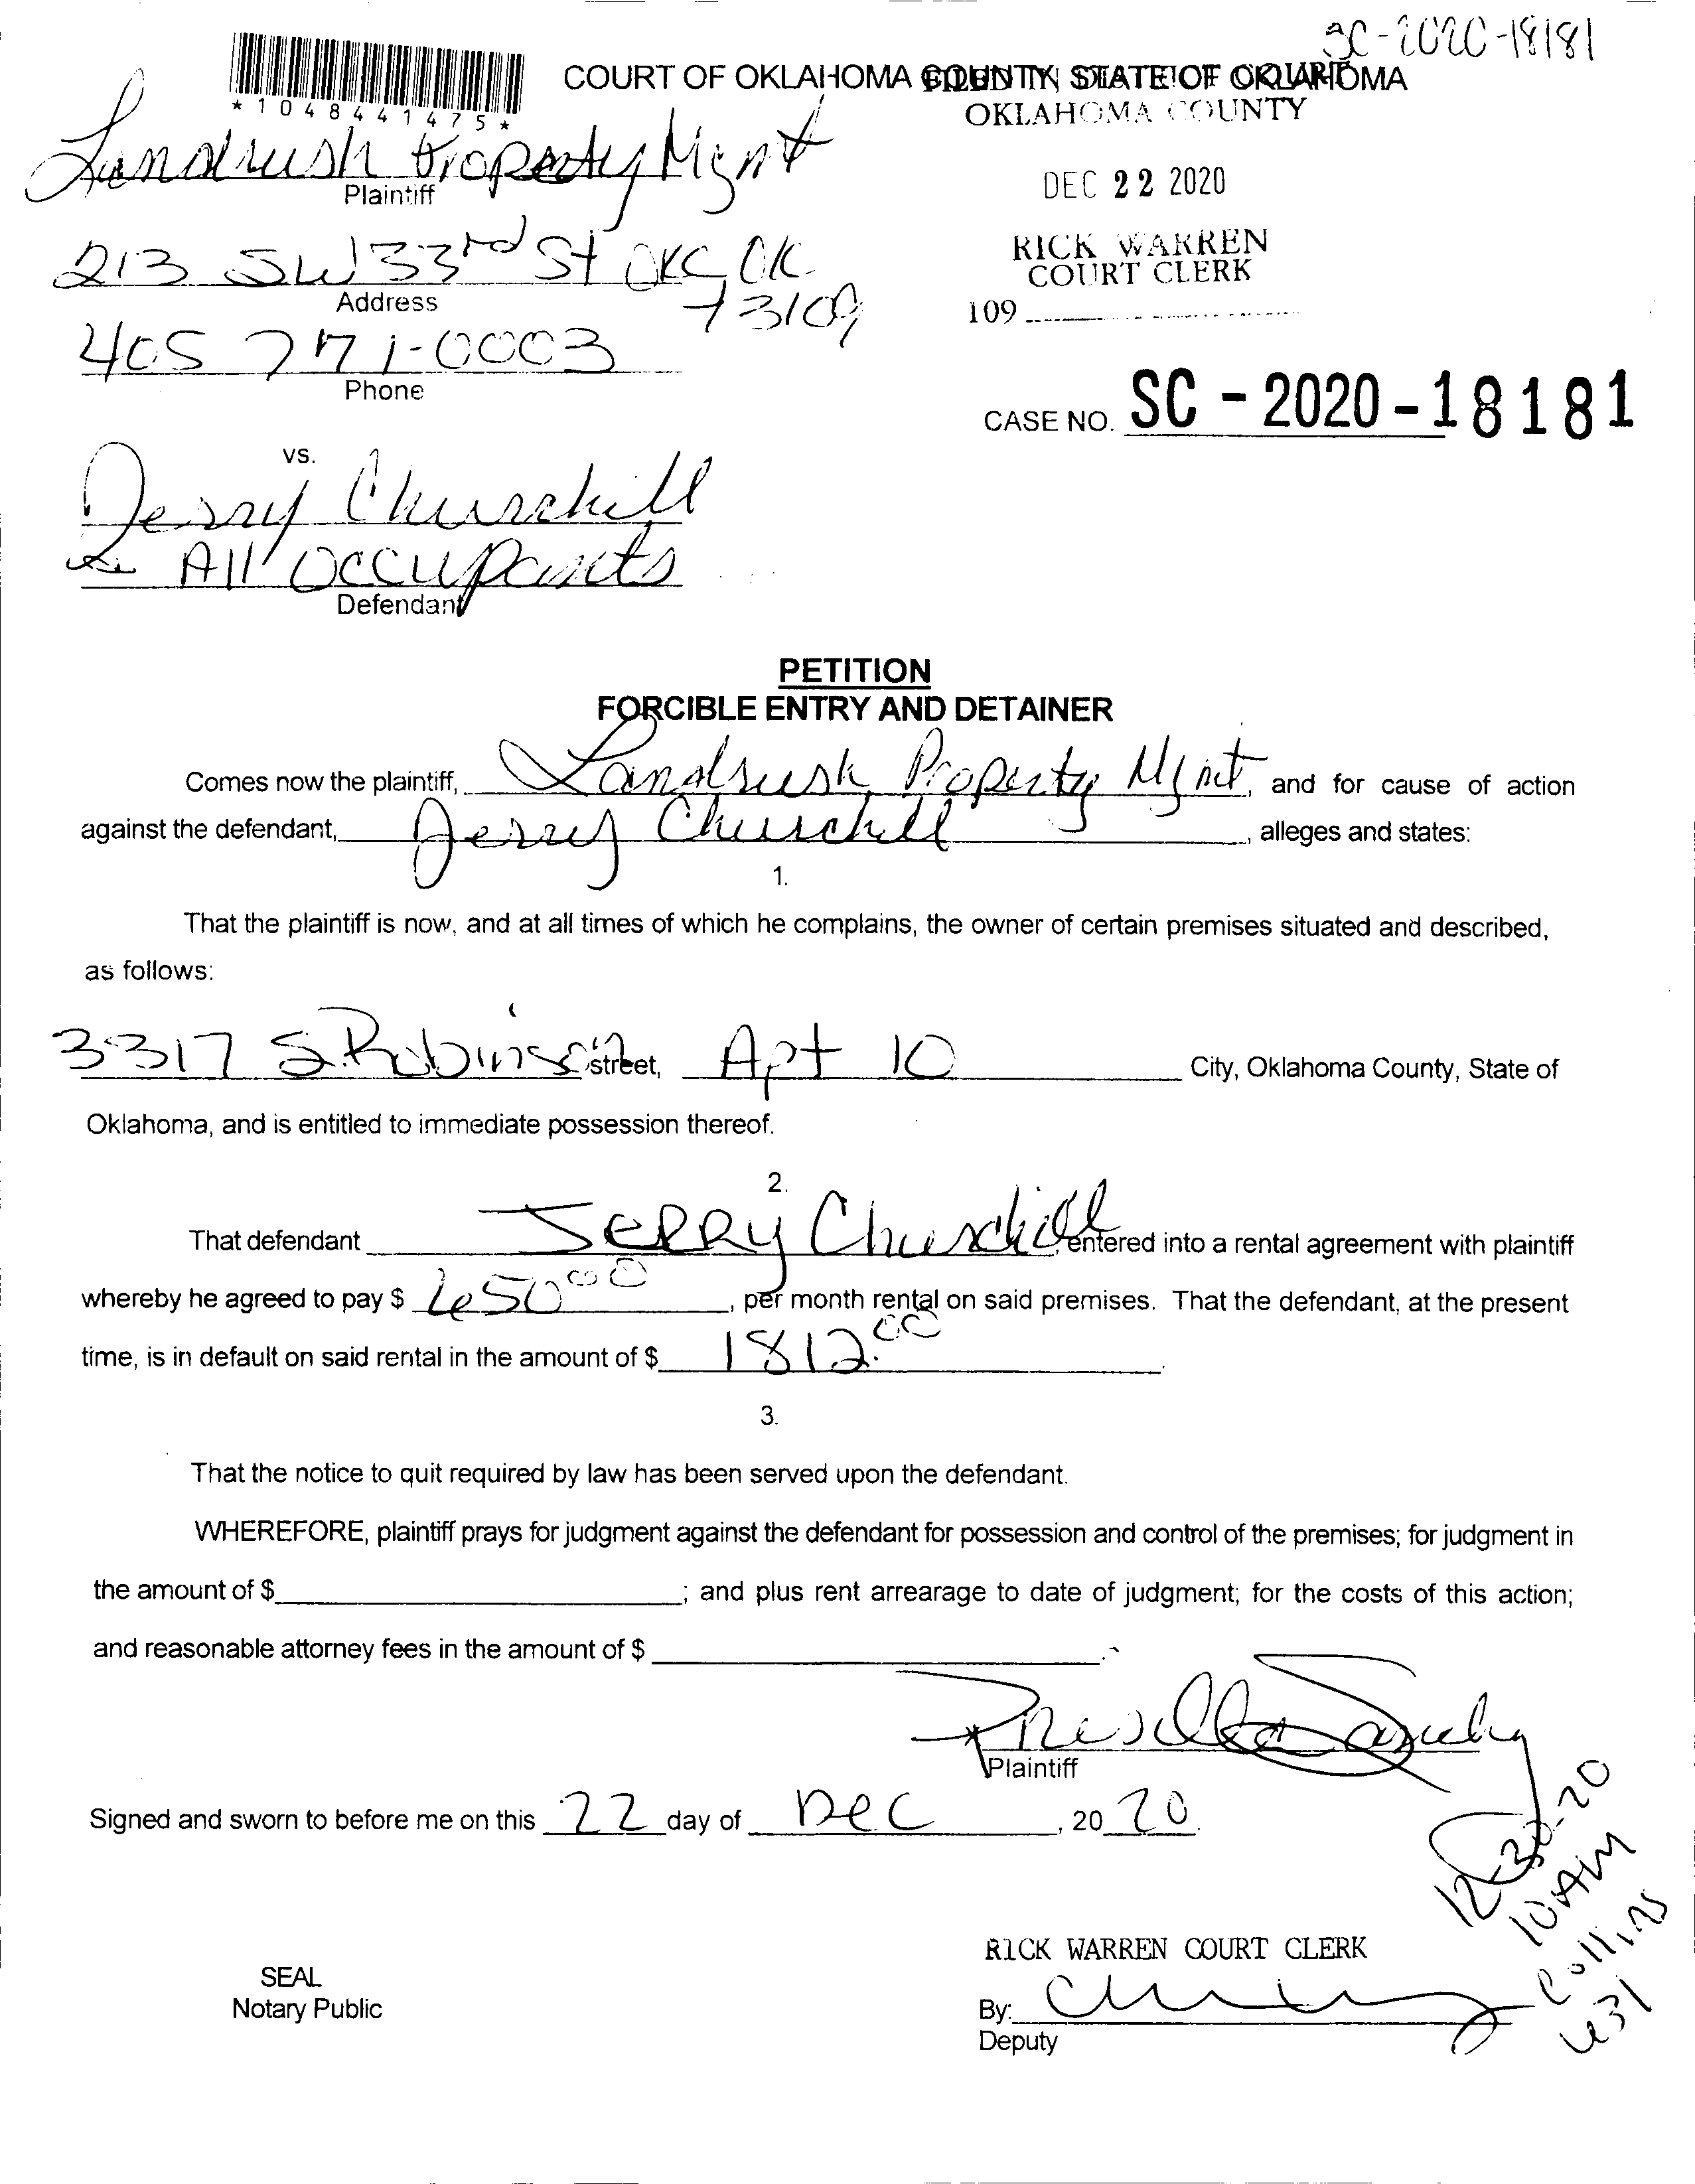 SC-2020-18181
COURT OF OKLAHOMA COUNTY, STATE OF OKLAHOMA
FILED IN DISTRICT COURT
OKLAHOMA COUNTY
*1048441475*
Landrush Property Mgmt
Plaintiff
DEC 22 2020
213 SW 33rd St OKC, OK
73109
Address
RICK WARREN
COURT CLERK
109
405 771-0003
Phone
CASE NO. SC-2020-18181
vs.
Jerry Churchill
& All Occupants
Defendant
PETITION
FORCIBLE ENTRY AND DETAINER
Comes now the plaintiff, Landrush Property Mgmt, and for cause of action
against the defendant, Jerry Churchill, alleges and states:
1.
That the plaintiff is now, and at all times of which he complains, the owner of certain premises situated and described,
as follows:
3317 S. Robinson street, Apt 10 City, Oklahoma County, State of
Oklahoma, and is entitled to immediate possession thereof.
2.
That defendant Jerry Churchill, entered into a rental agreement with plaintiff
whereby he agreed to pay $ 650.00, per month rental on said premises. That the defendant, at the present
time, is in default on said rental in the amount of $ 1812.00.
3.
That the notice to quit required by law has been served upon the defendant.
WHEREFORE, plaintiff prays for judgment against the defendant for possession and control of the premises; for judgment in
the amount of $ ; and plus rent arrearage to date of judgment; for the costs of this action;
and reasonable attorney fees in the amount of $ .
Plaintiff
Signed and sworn to before me on this 22 day of Dec, 20 20.
12-30-20
10AM
Collins
431
RICK WARREN COURT CLERK
SEAL
Notary Public
By:
Deputy